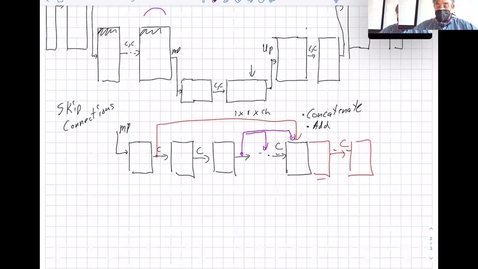 C,C
C,C
MP
Up
C,C
C,C
Skip
Connections
1x1xch
• Concatenate
• Add
MP
C
C
C
C